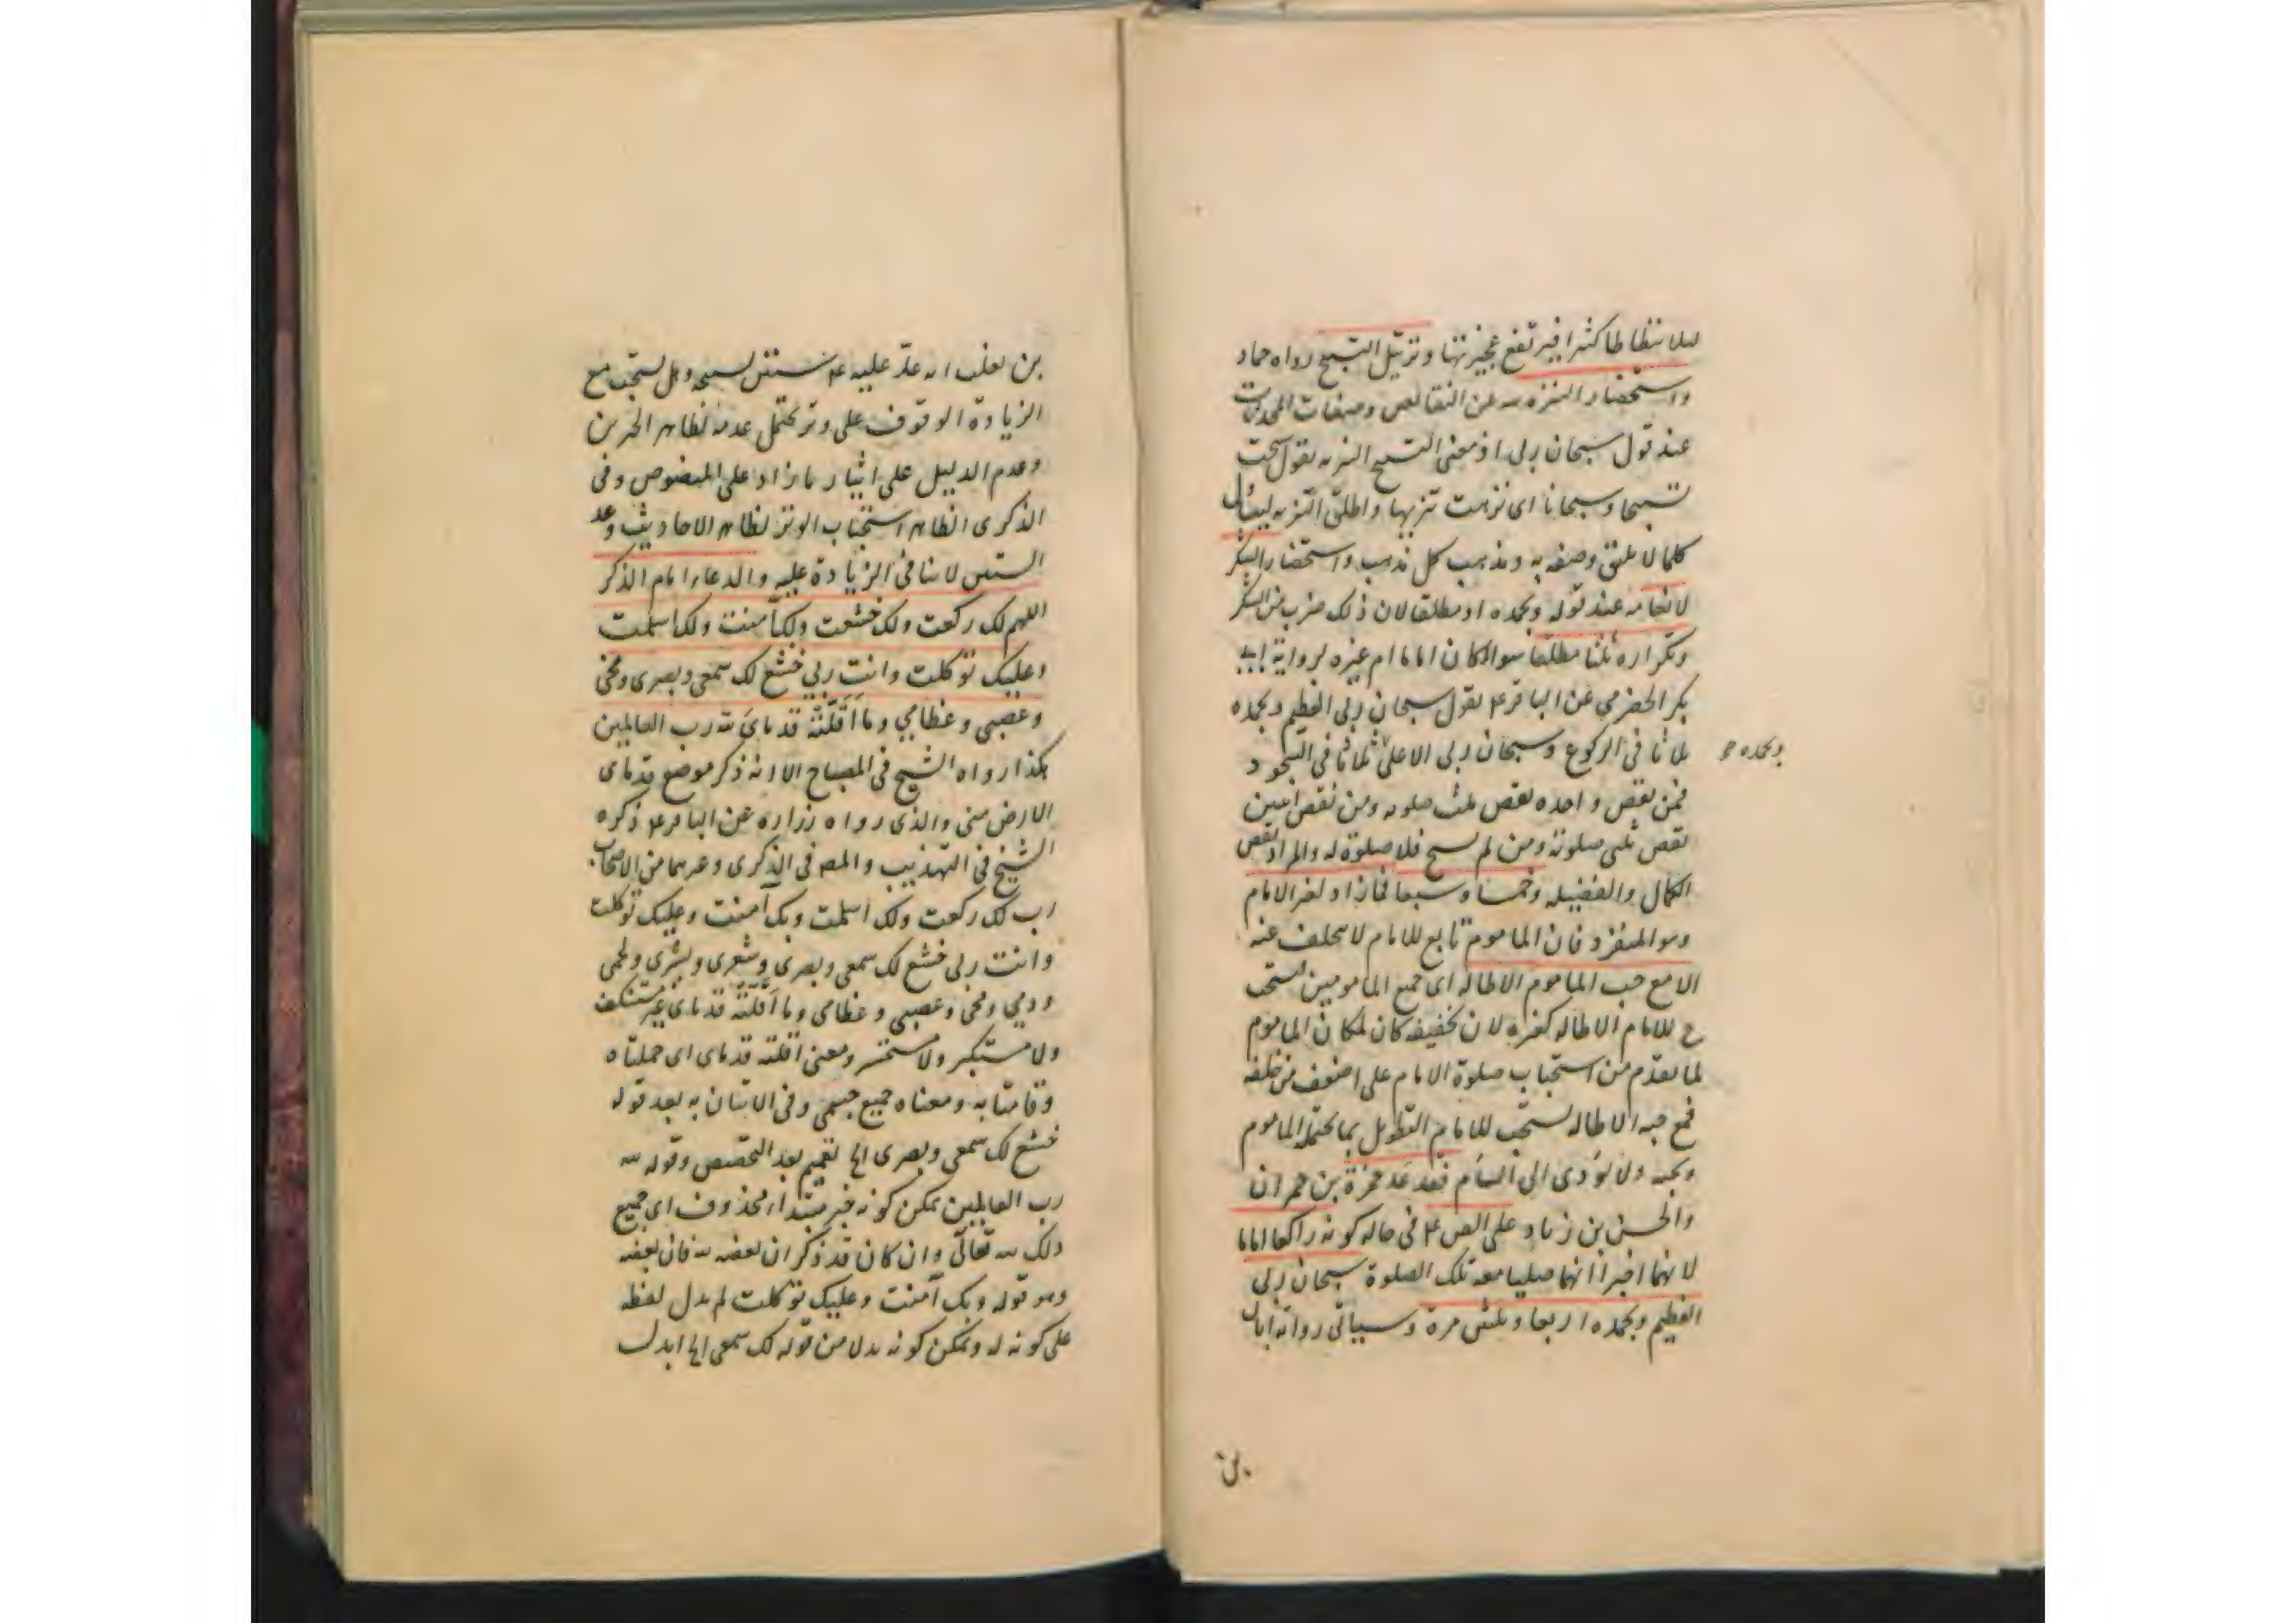 لئلا يتطاطا كثيرا فيرتفع عجيزتها وترتيل التسبيح رواه حماد
واستحضار التنزه لله عن النقائص وصفات المحدثات
عند قول سبحان ربى اذ معنى التسبيح التنزيه يقول سبحت
تسبيحا وسبحانا اى نزهت تنزيها واطلق التنزيه ليعمّ كل
كلما لا يليق وصفه به ومذهب كل مذهب واستحضار الشكر
لانعامه عند قوله وبحمده او مطلقا لان ذلك ضرب من الشكر
وتكراره ثلثا مطلقا سواء كان اماما ام غيره لرواية ابى
بكر الحضرمي عن الباقر ع يقول سبحان ربى العظيم وبحمده
ثلاثا فى الركوع وسبحان ربى الاعلى ثلاثا فى السجود
وبحمده
فمن نقص واحده نقص ثلث صلوته ومن نقص اثنين
نقص ثلثى صلوته ومن لم يسبح فلا صلوة له والمراد نقص
الكمال والفضيله وخمسا وسبعا فما زاد لغير الامام
وهو المنفرد فان الماموم تابع للامام لا يتخلف عنه
الا مع حب الماموم الاطاله اى جميع المامومين فيستحب
ح للامام الاطاله كغيره لان تخفيفه كان لمكان الماموم
لما تقدم من استحباب صلوة الامام على اضعف من خلفه
فمع حبه الاطاله يستحب للامام التطويل بما يحتمله الماموم
ويحبه ولا يؤدى الى السأم فقد عد حمزة بن حمران
والحسن بن زياد على الص ع فى حاله كونه راكعا اماما
لانهما اخبرا انهما صليا معه تلك الصلوة سبحان ربى
العظيم وبحمده اربعا وثلثين مرة وسياتى رواية ابان
بن
بن تغلب انه عدّ عليه ع ستين تسبيحه وهل يستحب مع
الزيادة الوقوف على وتر يحتمل عدمه لظاهر الخبرين
وعدم الدليل على ايثار ما زاد على المنصوص وفى
الذكرى الظاهر استحباب الوتر لظاهر الاحاديث وعد
الستين لا ينافى الزيادة عليه والدعاء امام الذكر
اللهم لك ركعت ولك خشعت ولك آمنت ولك اسلمت
وعليك توكلت وانت ربي خشع لك سمعى وبصرى ومخى
وعصبى وعظامي وما أقلّته قدماىَ لله رب العالمين
هكذا رواه الشيخ فى المصباح الا انه ذكر موضع قدماى
الارض منى والذى رواه زراره عن الباقر ع ذكره
الشيخ فى التهذيب والمصه فى الذكرى وغيرهما من الاصحاب
رب لك ركعت ولك اسلمت وبك آمنت وعليك توكلت
وانت ربى خشع لك سمعى وبصرى وشعرى وبشرى ولحمى
ودمي ومخى وعصبى وعظامى وما أقلّته قدماى غير مستنكف
ولا مستكبر ولا مستحسر ومعنى اقلته قدماى اى حملتاه
وقامتا به ومعناه جميع جسمى وفى الاتيان به بعد قوله
خشع لك سمعى وبصرى الخ تعميم بعد التخصيص وقوله لله
رب العالمين يمكن كونه خبر مبتدا محذوف اى جميع
ذلك لله تعالى وان كان قد ذكر ان بعضه لله فان بعضه
وهو قوله وبك آمنت وعليك توكلت لم يدل لفظه
على كونه له ويمكن كونه بدلا من قوله لك سمعى الخ ابدل